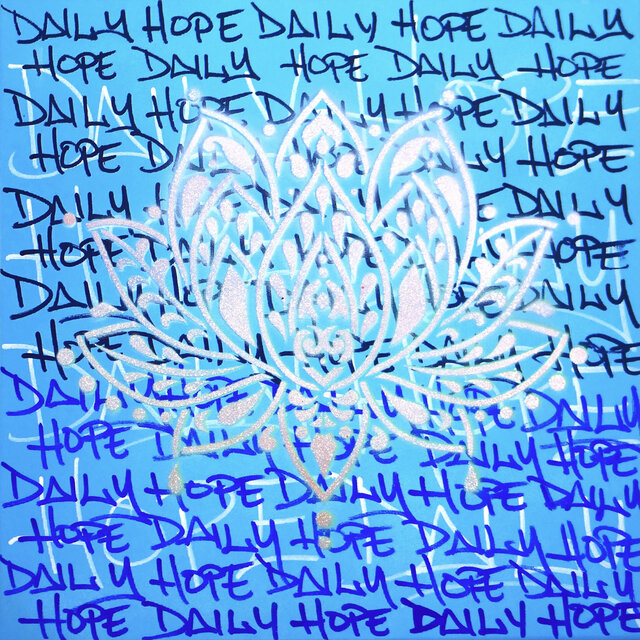 DAILY HOPE DAILY HOPE DAILY
HOPE DAILY HOPE DAILY HOPE
DAILY HOPE DAILY HOPE DAILY
HOPE DAILY HOPE DAILY HOPE
DAILY DAILY
HOPE DAILY HOPE
DAILY HOPE DAILY
HOPE DAILY HOPE DAILY HOPE
DAILY HOPE DAILY
HOPE DAILY HOPE DAILY HOPE
DAILY HOPE DAILY HOPE DAILY
HOPE DAILY HOPE DAILY HOPE
DAILY HOPE DAILY HOPE DAILY
HOPE DAILY HOPE DAILY HOPE